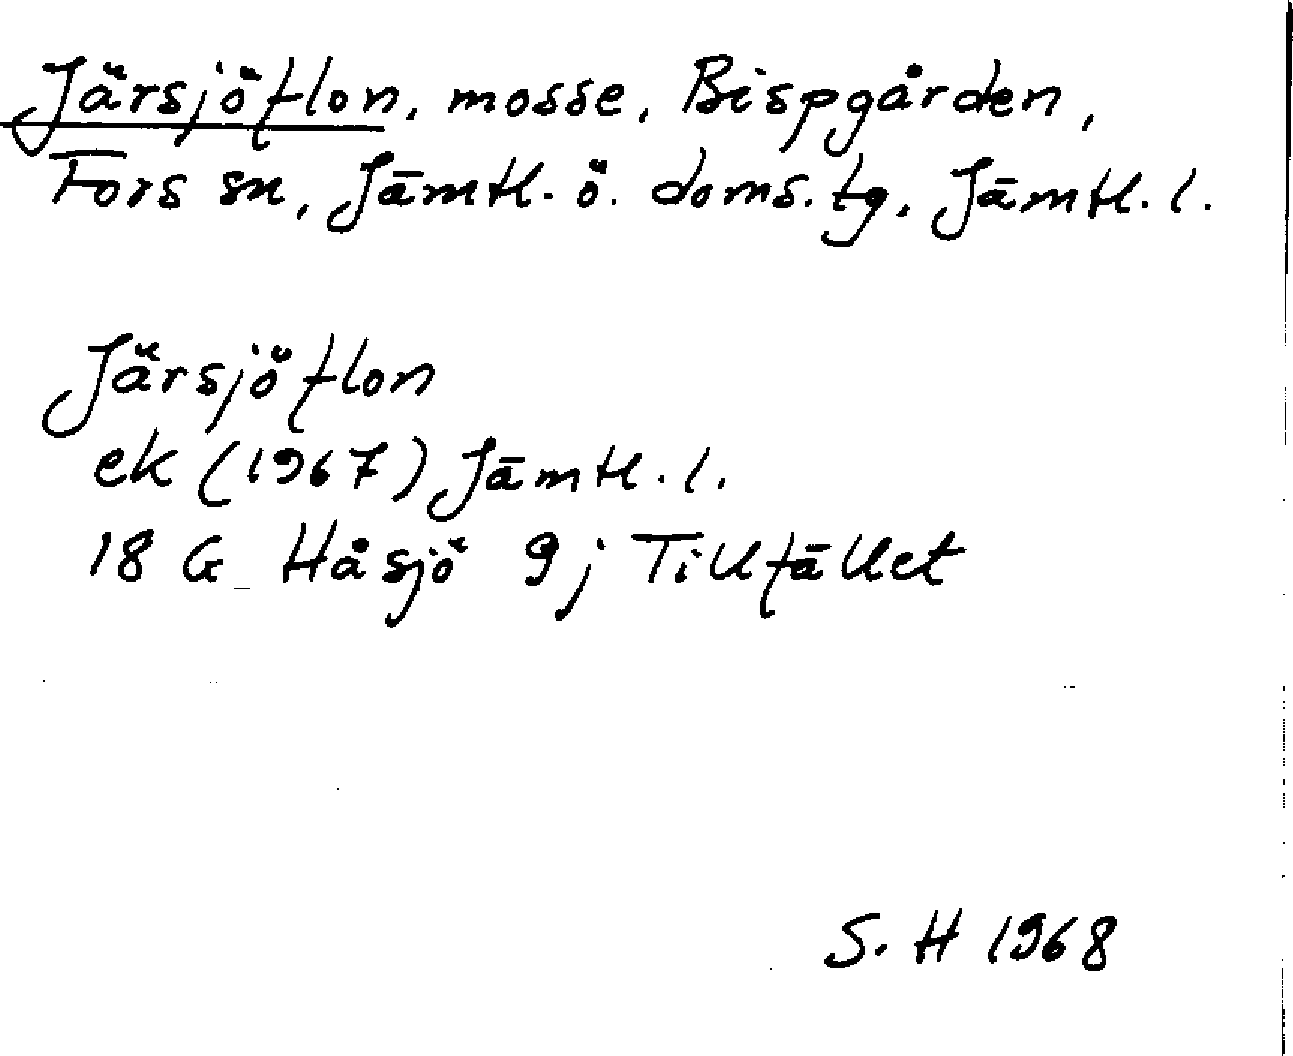 Järsjöflon, mosse, Bispgården,
Fors sn, Jämtl. ö. doms. tg, Jämtl. l.
Järsjöflon
ek (1967) Jämtl. l.
18 G Håsjö 9j Tillfället
S. H 1968